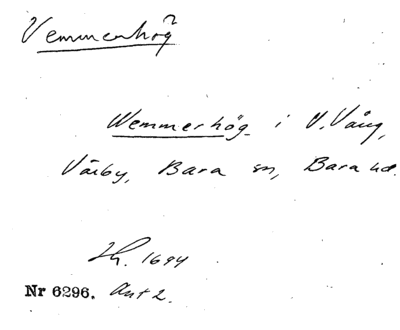 Vemmerhög
Wemmerhög i V. Vång,
Värby, Bara sn, Bara hd.
Lh. 1694
Nr 6296. Ant 2.